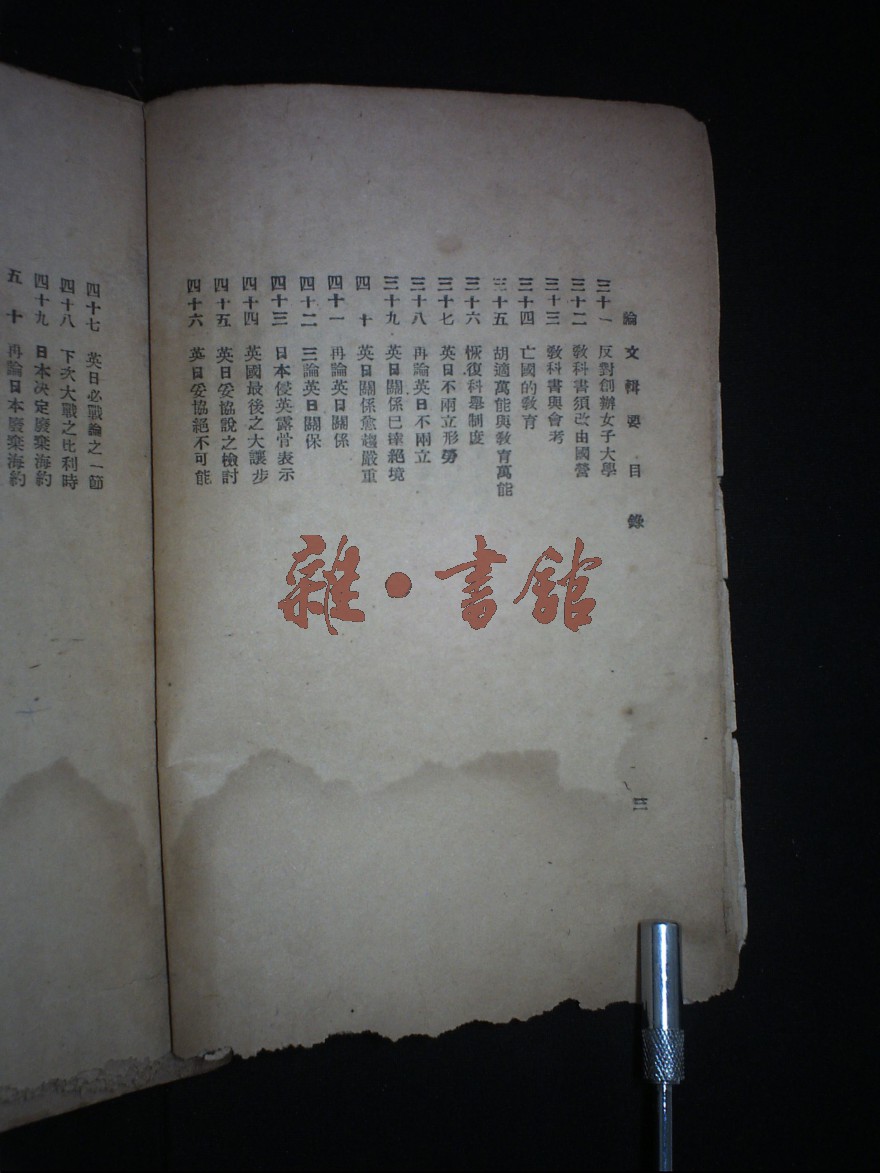 論文輯要目錄
三十一 反對創辦女子大學
三十二 敎科書須改由國營
三十三 敎科書與會考
三十四 亡國的敎育
三十五 胡適萬能與敎育萬能
三十六 恢復科舉制度
三十七 英日不兩立形勢
三十八 再論英日不兩立
三十九 英日關係已達絕境
四十 英日關係愈趨嚴重
四十一 再論英日關係
四十二 三論英日關係
四十三 日本侵英露骨表示
四十四 英國最後之大讓步
四十五 英日妥協說之檢討
四十六 英日妥協絕不可能
三
四十七 英日必戰論之一節
四十八 下次大戰之比利時
四十九 日本决定廢棄海約
五十 再論日本廢棄海約
雜·書館